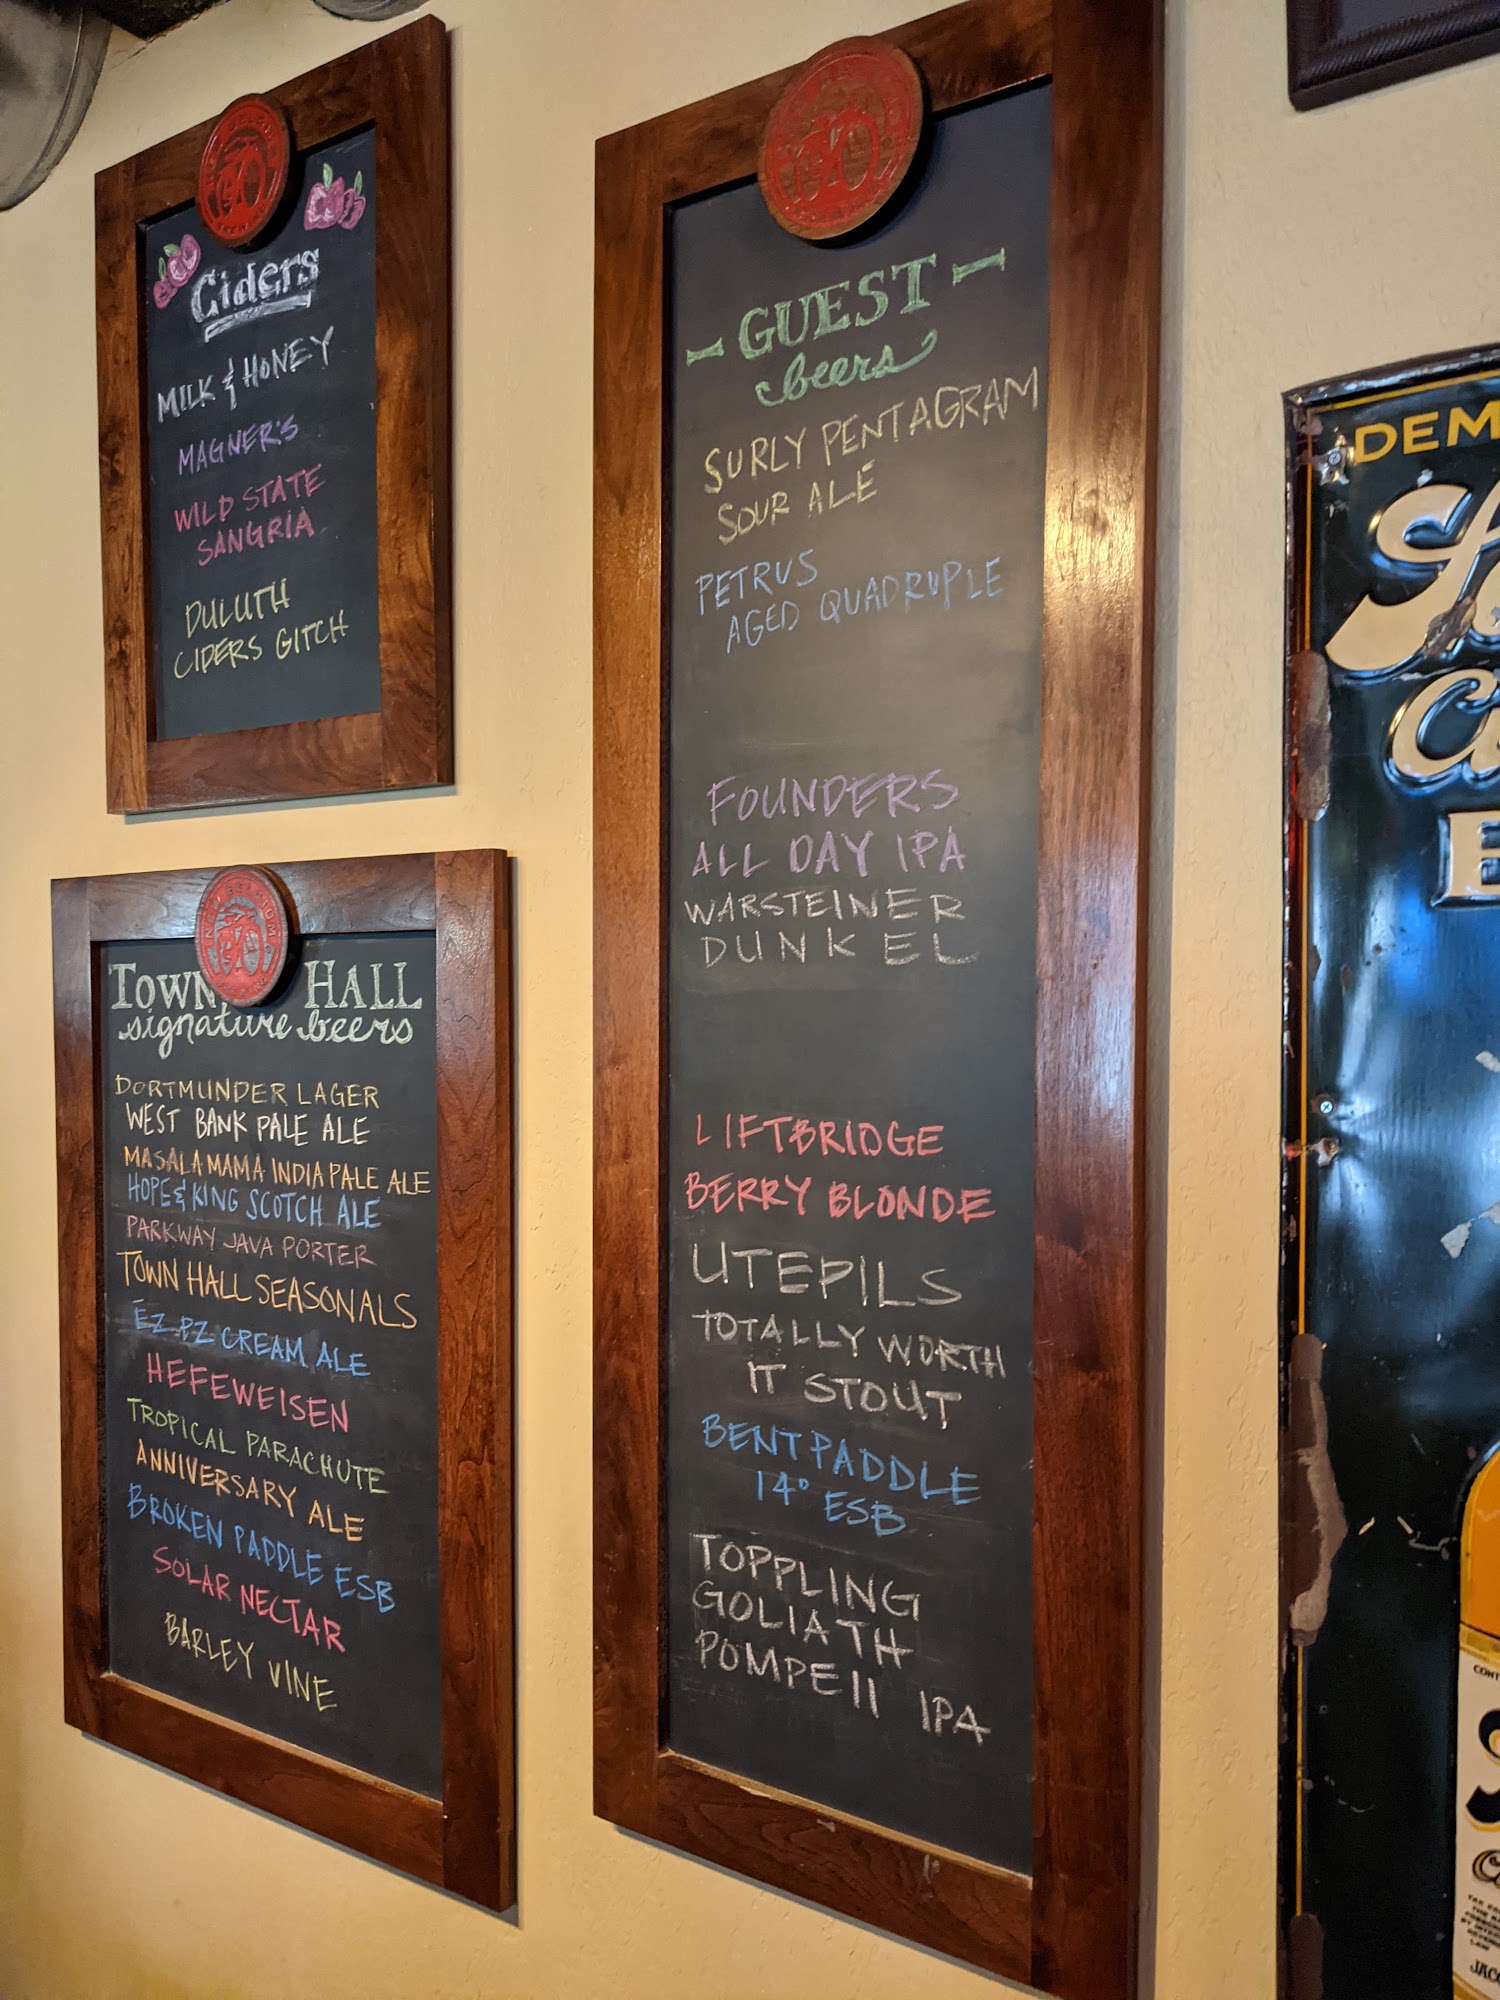 Ciders
MILK & HONEY
MAGNER'S
WILD STATE
SANGRIA
DULUTH
CIDERS GITCH
NEW BELGIUM
TOWN HALL
signature beers
DORTMUNDER LAGER
WEST BANK PALE ALE
MASALA MAMA INDIA PALE ALE
HOPE & KING SCOTCH ALE
PARKWAY JAVA PORTER
TOWN HALL SEASONALS
EZ PZ CREAM ALE
HEFEWEISEN
TROPICAL PARACHUTE
ANNIVERSARY ALE
BROKEN PADDLE ESB
SOLAR NECTAR
BARLEY VINE
- GUEST -
beers
SURLY PENTAGRAM
SOUR ALE
PETRUS
AGED QUADRUPLE
FOUNDERS
ALL DAY IPA
WARSTEINER
DUNKEL
LIFTBRIDGE
BERRY BLONDE
UTEPILS
TOTALLY WORTH
IT STOUT
BENT PADDLE
14° ESB
TOPPLING
GOLIATH
POMPEII IPA
DEM